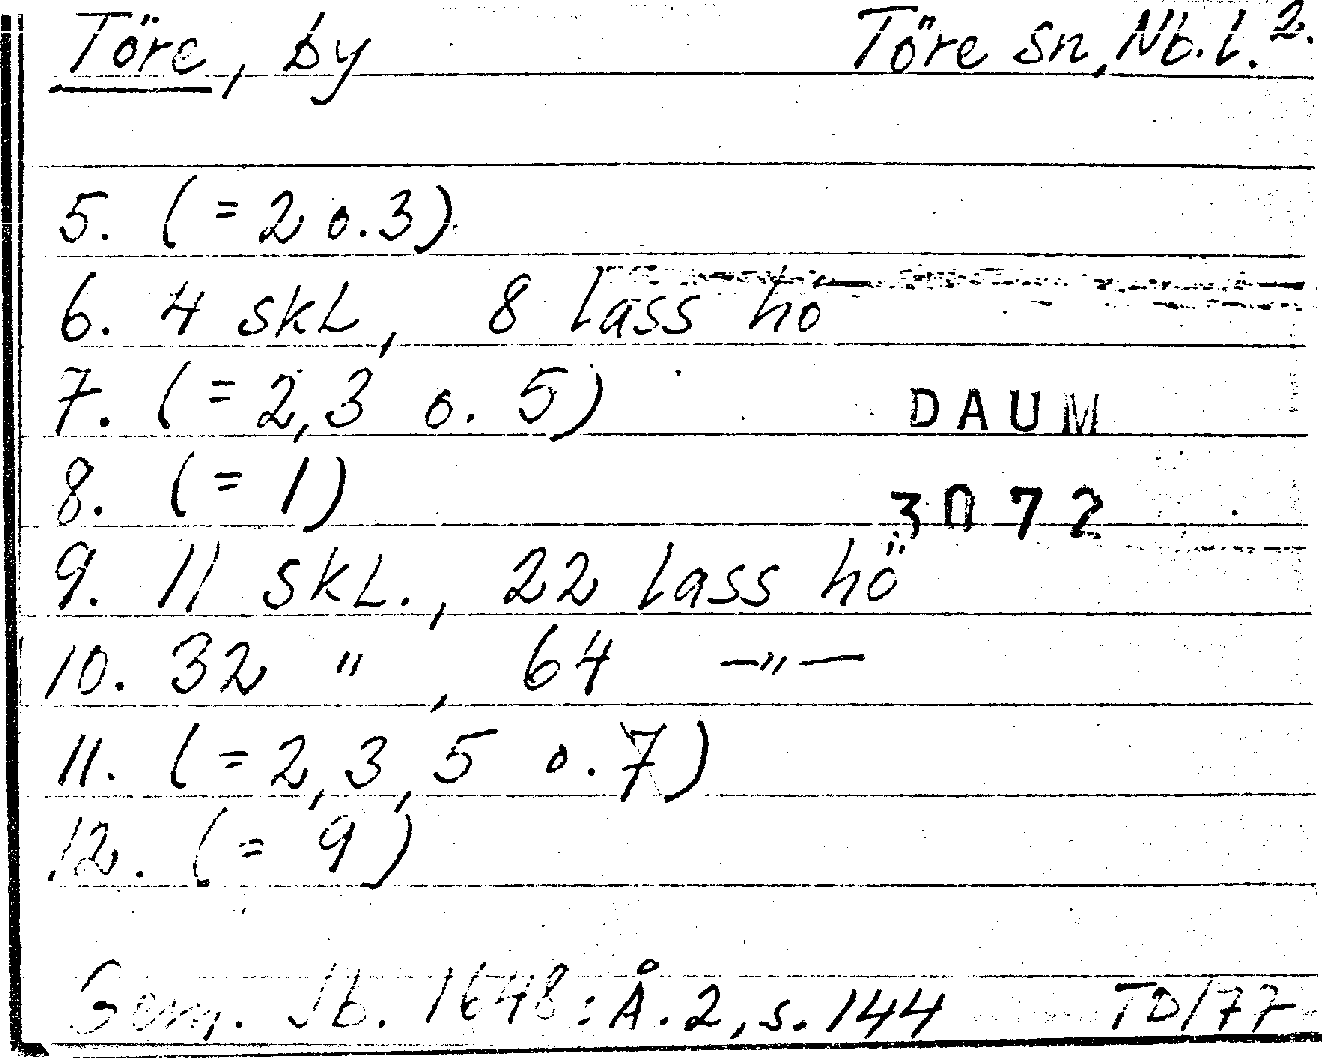 Töre, by Töre sn, Nb.l. 2.
5. (= 2 o. 3)
6. 4 skL, 8 lass hö
7. (= 2, 3 o. 5)
DAUM
8. (= 1)
3072
9. 11 skL., 22 lass hö
10. 32 " , 64 —"—
11. (= 2, 3, 5 o. 7)
12. (= 9)
Gem. Jb. 1648: Å. 2, s. 144 TD/77